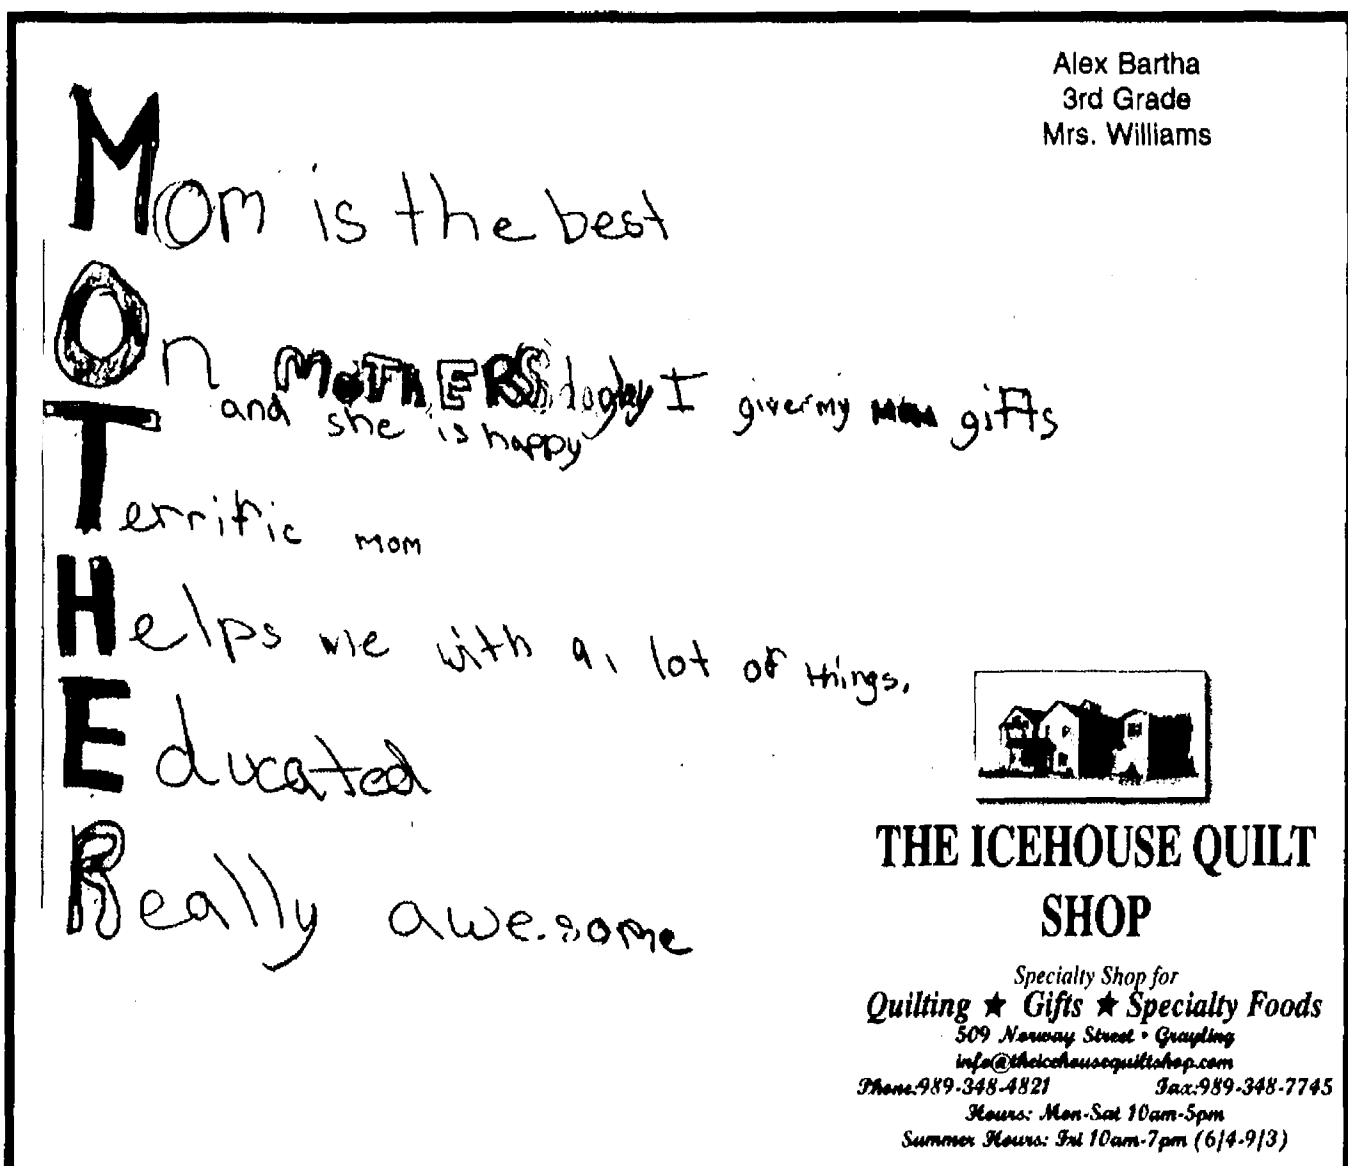 Alex Bartha
3rd Grade
Mrs. Williams
Mom is the best
On MOTHERS day I give my mom gifts
and she is happy
Terrific mom
Helps me with a lot of things.
Educated
Really awesome
THE ICEHOUSE QUILT
SHOP
Specialty Shop for
Quilting ★ Gifts ★ Specialty Foods
509 Norway Street • Grayling
info@theicehousequiltshop.com
Phone:989-348-4821 Fax:989-348-7745
Hours: Mon-Sat 10am-5pm
Summer Hours: Fri 10am-7pm (6/4-9/3)